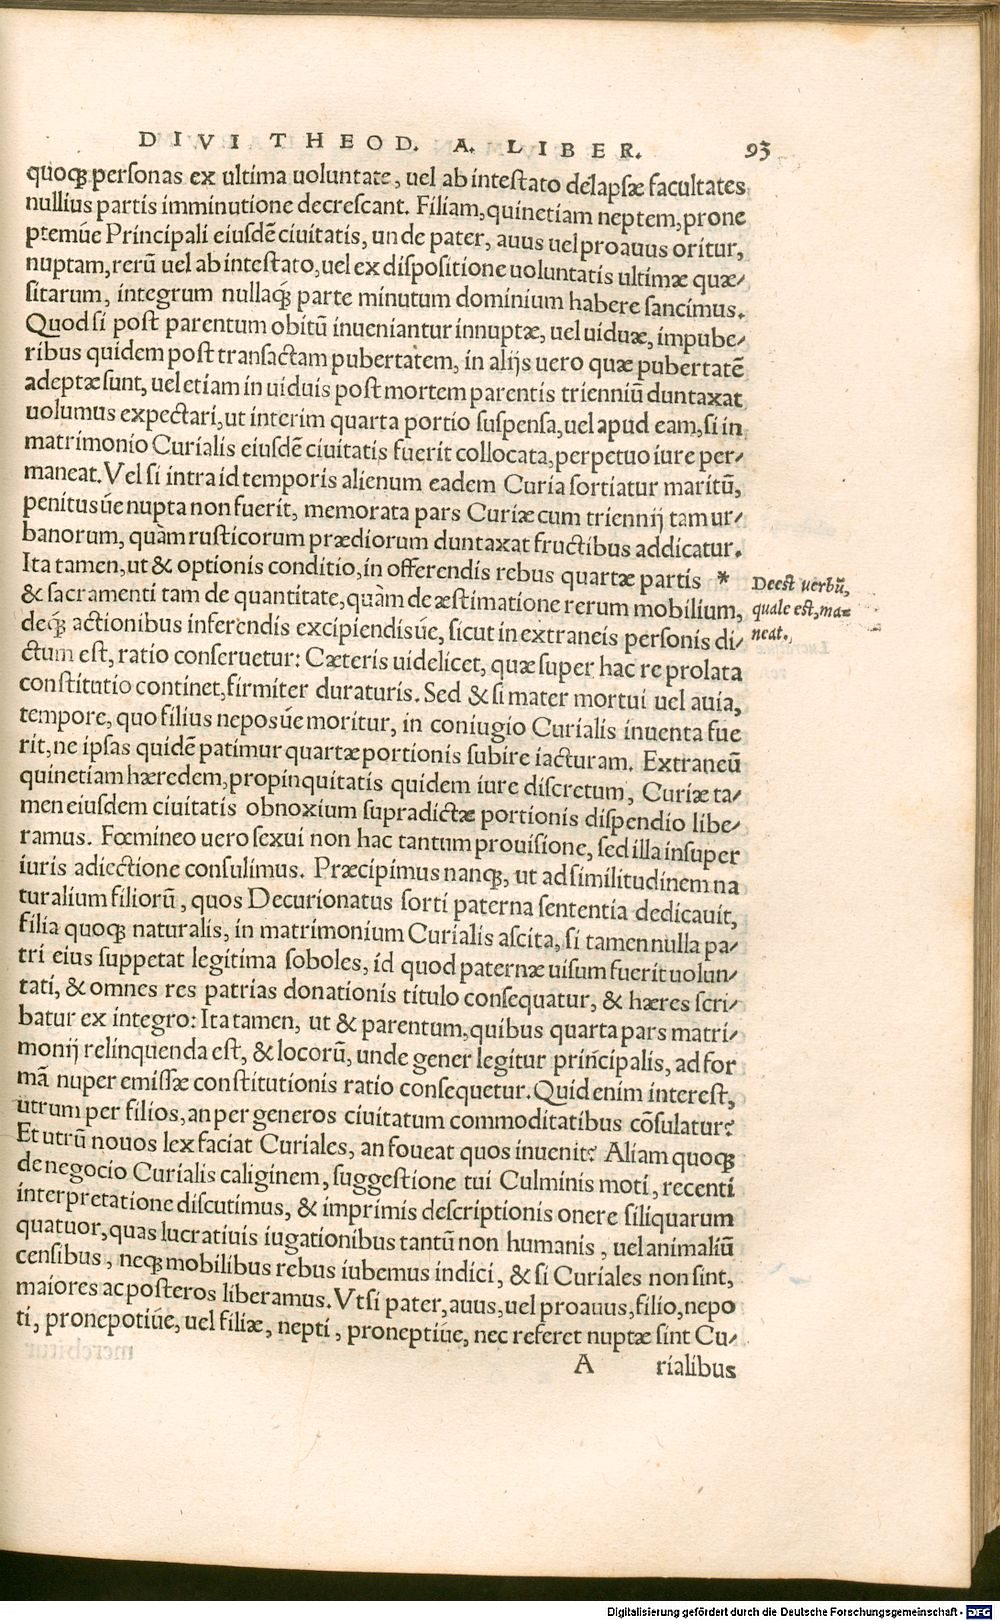 DIVI THEOD. A. LIBER. 93
quoq; personas ex ultima uoluntate, uel ab intestato delapsæ facultates
nullius partis imminutione decrescant. Filiam, quinetiam neptem, prone
ptemúe Principali eiusdē ciuitatis, unde pater, auus uel proauus oritur,
nuptam, rerū uel ab intestato, uel ex dispositione uoluntatis ultimæ quæ-
sitarum, integrum nullaq́; parte minutum dominium habere sancimus.
Quod si post parentum obitū inueniantur innuptæ, uel uiduæ, impube-
ribus quidem post transactam pubertatem, in alijs uero quæ pubertatē
adeptæ sunt, uel etiam in uiduis post mortem parentis trienniū duntaxat
uolumus expectari, ut interim quarta portio suspensa, uel apud eam, si in
matrimonio Curialis eiusdē ciuitatis fuerit collocata, perpetuo iure per-
maneat. Vel si intra id temporis alienum eadem Curia sortiatur maritū,
penitusúe nupta non fuerit, memorata pars Curiæ cum triennij tam ur-
banorum, quàm rusticorum prædiorum duntaxat fructibus addicatur.
Ita tamen, ut & optionis conditio, in offerendis rebus quartæ partis *
Deest uerbū,
quale est, ma=
neat.
& sacramenti tam de quantitate, quàm de æstimatione rerum mobilium,
deq́; actionibus inferendis excipiendisúe, sicut in extraneis personis di-
ctum est, ratio conseruetur: Cæteris uidelicet, quæ super hac re prolata
constitutio continet, firmiter duraturis. Sed & si mater mortui uel auia,
tempore, quo filius neposúe moritur, in coniugio Curialis inuenta fue
rit, ne ipsas quidē patimur quartæ portionis subire iacturam. Extraneū
quinetiam hæredem, propinquitatis quidem iure discretum, Curiæ ta-
men eiusdem ciuitatis obnoxium supradictæ portionis dispendio libe-
ramus. Fœmineo uero sexui non hac tantum prouisione, sed illa insuper
iuris adiectione consulimus. Præcipimus nanq;, ut ad similitudinem na
turalium filiorū, quos Decurionatus sorti paterna sententia dedicauit,
filia quoq; naturalis, in matrimonium Curialis ascita, si tamen nulla pa-
tri eius suppetat legitima soboles, id quod paternæ uisum fuerit uolun-
tati, & omnes res patrias donationis titulo consequatur, & hæres scri-
batur ex integro: Ita tamen, ut & parentum, quibus quarta pars matri-
monij relinquenda est, & locorū, unde gener legitur principalis, ad for
mā nuper emissæ constitutionis ratio consequetur. Quid enim interest,
utrum per filios, an per generos ciuitatum commoditatibus cōsulatur?
Et utrū nouos lex faciat Curiales, an foueat quos inuenit? Aliam quoq;
de negocio Curialis caliginem, suggestione tui Culminis moti, recenti
interpretatione discutimus, & imprimis descriptionis onere siliquarum
quatuor, quas lucratiuis iugationibus tantū non humanis, uel animaliū
censibus, neq; mobilibus rebus iubemus indici, & si Curiales non sint,
maiores ac posteros liberamus. Vt si pater, auus, uel proauus, filio, nepo
ti, pronepotiúe, uel filiæ, nepti, proneptiúe, nec referet nuptæ sint Cu-
A rialibus
Digitalisierung gefördert durch die Deutsche Forschungsgemeinschaft - DFG